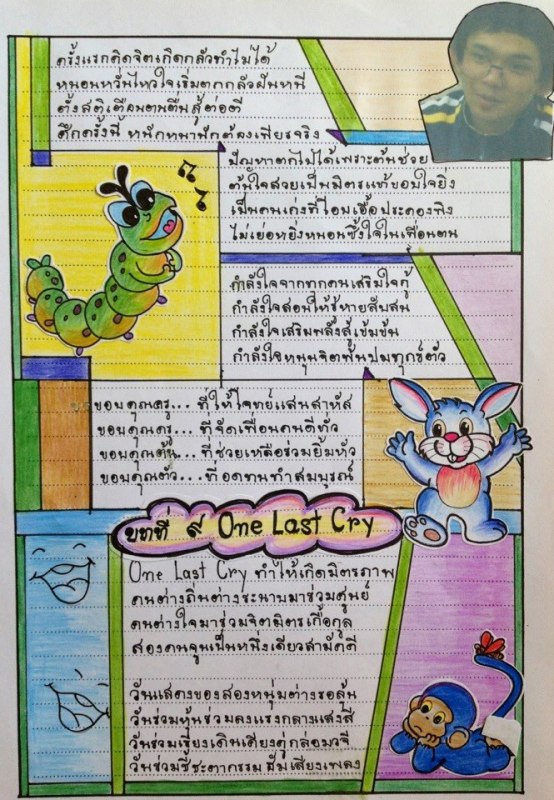 ครั้งแรกคิดจิตเกิดกลัวทำไม่ได้
หนอนหวั่นไหวใจเริ่มตกกลัวฝันหนี
ตั้งสติเตือนตนตื่นสู้ต่อตี
ศึกครั้งนี้ หนักหนานักต้องเพียรจริง
ปัญหาตกไปได้เพราะต้นช่วย
ต้นใจสวยเป็นมิตรแท้ขอบใจยิ่ง
เป็นคนเก่งที่โอบเอื้อประคองพิง
ไม่เย่อหยิ่งหนอนซึ้งใจในเพื่อนตน
กำลังใจจากทุกคนเสริมใจกู้
กำลังใจสอนให้รู้หายสับสน
กำลังใจเสริมพลังสู้เข้มข้น
กำลังใจหนุนจิตพ้นปมทุกข์ตัว
ขอบคุณครู... ที่ให้โจทย์แสนสาหัส
ขอบคุณครู... ที่จัดเพื่อนคนดีทั่ว
ขอบคุณต้น... ที่ช่วยเหลือร่วมยิ้มหัว
ขอบคุณตัว... ที่อดทนทำสมบูรณ์
บทที่ ๙ One Last Cry
One Last Cry ทำให้เกิดมิตรภาพ
คนต่างถิ่นต่างระนาบมาร่วมศูนย์
คนต่างใจมาร่วมจิตมิตรเกื้อกูล
สองคนจูนเป็นหนึ่งเดียวสามัคคี
วันแสดงของสองหนุ่มต่างรอลุ้น
วันร่วมหุ้นร่วมลงแรงกลางแสงสี
วันร่วมเรียงเดินเคียงคู่กล่อมวจี
วันร่วมชี้ชะตากรรม สัมเสียงเพลง